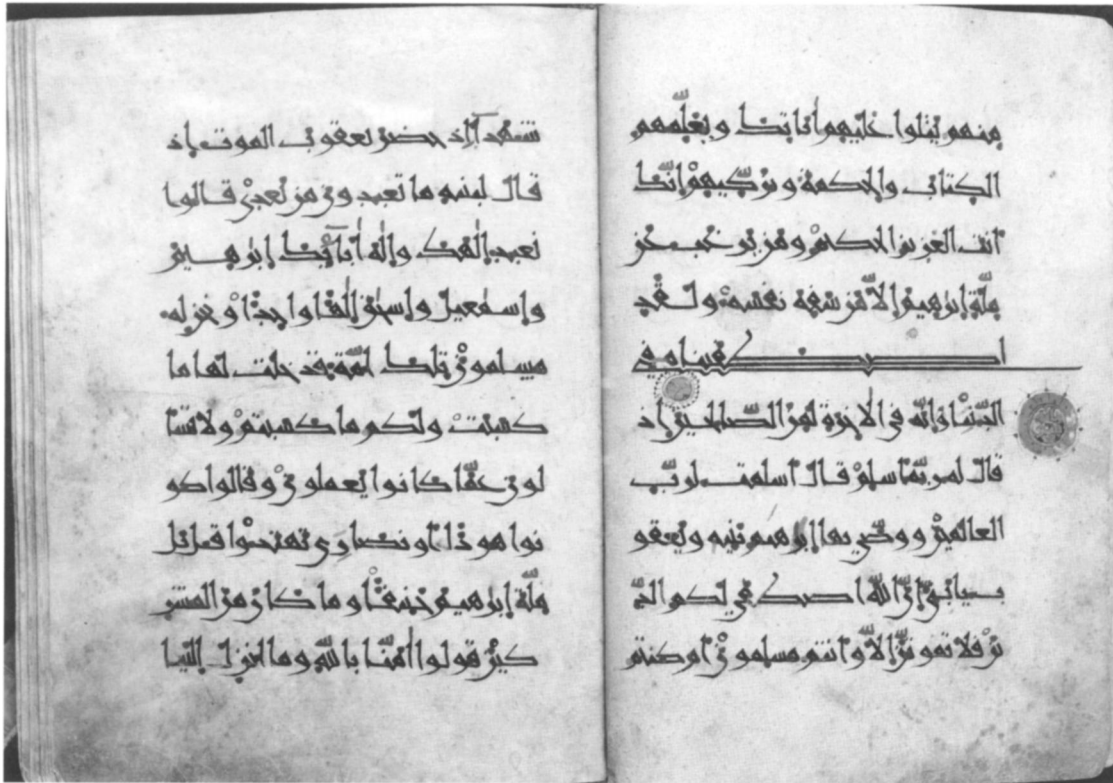 منهم يتلوا عليهم آياتك ويعلمهم
الكتاب والحكمة ويزكيهم إنك
أنت العزيز الحكيم ومن يرغب عن
ملة إبرهيم إلا من سفه نفسه ولقد
اصطفيناه في
الدنيا وإنه في الآخرة لمن الصالحين إذ
قال له ربه أسلم قال أسلمت لرب
العالمين ووصى بها إبرهيم بنيه ويعقو
ب يا بني إن الله اصطفى لكم الد
ين فلا تموتن إلا وأنتم مسلمون أم كنتم
شهداء إذ حضر يعقوب الموت إذ
قال لبنيه ما تعبدون من بعدي قالوا
نعبد إلهك وإله آبائك إبرهيم
وإسمعيل وإسحق إلها واحدا ونحن له
مسلمون تلك أمة قد خلت لها ما
كسبت ولكم ما كسبتم ولا تسأ
لون عما كانوا يعملون وقالوا كو
نوا هودا أو نصارى تهتدوا قل بل
ملة إبرهيم حنيفا وما كان من المشر
كين قولوا آمنا بالله وما أنزل إلينا